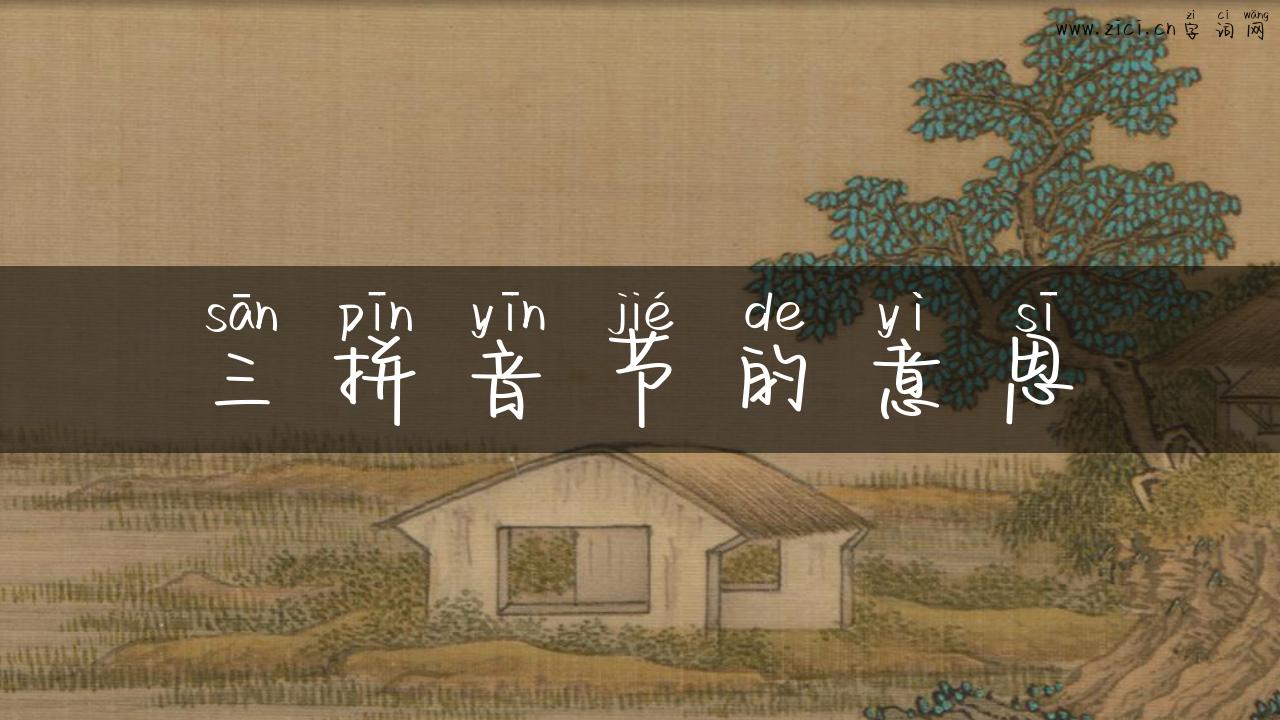 zì cí wǎng
www.zici.cn 字 词 网
sān pīn yīn jié de yì sī
三 拼 音 节 的 意 思